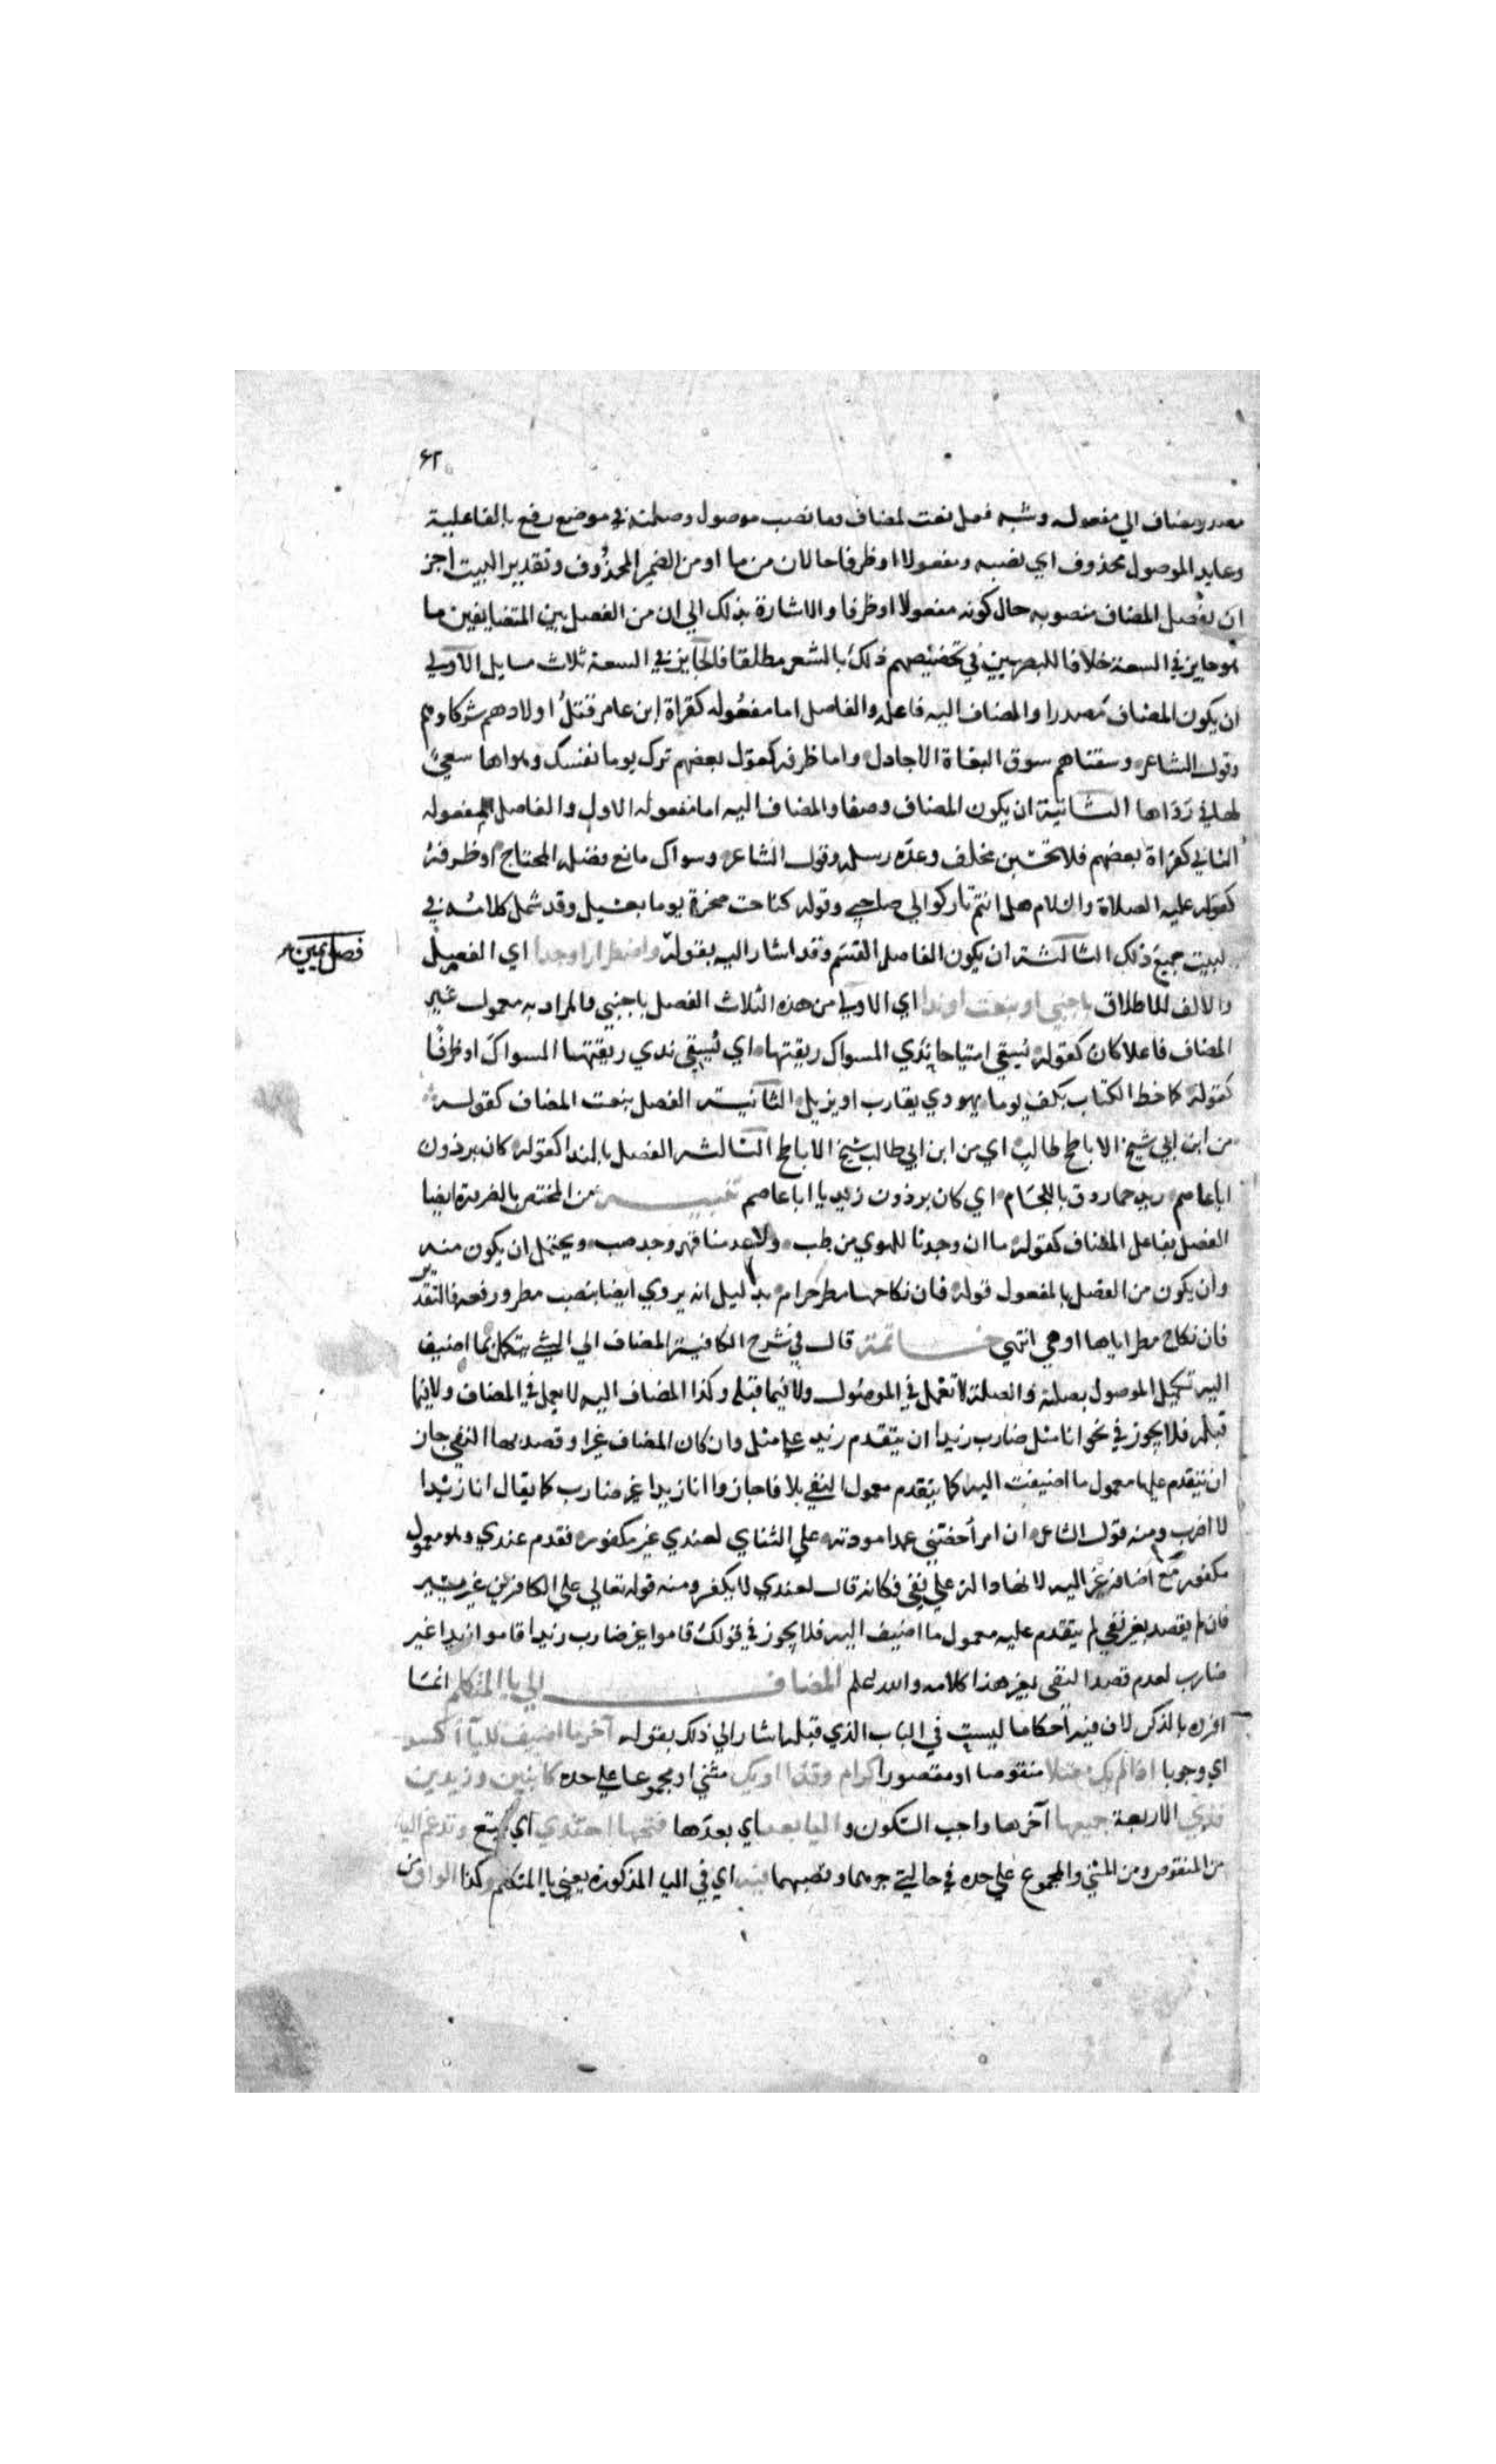 ٦٢
مصدر مضاف الي مفعوله وشبه فعل نعت لمضاف وما نصب موصول وصلته في موضع رفع بالفاعلية
وعايد الموصول محذوف اي نصبه ومفعولا او ظرفا حالان من ما او من الضمير المحذوف وتقدير البيت اجز
ان يفصل المضاف منصوبه حال كونه مفعولا او ظرفا والاشارة بذلك الي ان من الفصل بين المتضايفين ما
هو جايز في السعة خلافا للبصريين في تخصيصهم ذلك بالشعر مطلقا فالجايز في السعة ثلاث مسايل الاولي
ان يكون المضاف مصدرا والمضاف اليه فاعله والفاصل اما مفعوله كقراة ابن عامر قتل اولادهم شركاوهم
وقول الشاعر وسقناهم سوق البغاة الاجادل واما ظرفه كقول بعضهم ترك يوما نفسك وهواها سعي
لها في رداها الثانية ان يكون المضاف وصفا والمضاف اليه اما مفعوله الاول والفاصل مفعوله
الثاني كقراة بعضهم فلا تحسبن مخلف وعده رسله وقول الشاعر وسواك مانع فضله المحتاج او ظرفه
كقوله عليه الصلاة والسلام هل انتم تاركوا لي صاحبي وقوله كناحت صخرة يوما بعسيل وقد شمل كلامه في
البيت جميع ذلك الثالثة ان يكون الفاصل القسم وقد اشار اليه بقوله واضطرارا وجدا اي الفصل
فصل يمين
والالف للاطلاق باجنبي او بنعت او ندا اي الاولي من هذه الثلاث الفصل باجنبي والمراد به معمول غير
المضاف فاعلا كان كقوله تسقي امتياحا ندي المسواك ريقتها اي تسقي ندي ريقتها المسواك او ظرفا
كقوله كما خط الكتاب بكف يوما يهودي يقارب او يزيل الثانية الفصل بنعت المضاف كقوله
من ابن ابي شيخ الاباطح طالب اي من ابن ابي طالب شيخ الاباطح الثالثة الفصل بالندا كقوله كان برذون
ابا عاصم زيد حمار دق باللجام اي كان برذون زيد يا ابا عاصم تنبيه من المختص بالضرورة ايضا
الفصل بفاعل المضاف كقوله ما ان وجدنا للهوي من طب ولا عدمنا قهر وجد صب ويحتمل ان يكون منه
وان يكون من الفصل بالمفعول قوله فان نكاحها مطر حرام بدليل انه يروي ايضا بنصب مطر ورفعه فالتقدير
فان نكاح مطر اياها او هي انتهي خاتمة قال في شرح الكافية المضاف الي الشي يتكمل بما اضيف
اليه تكميل الموصول بصلته والصلة لا تعمل في الموصول ولا فيما قبله وكذا المضاف اليه لا يعمل في المضاف ولا فيما
قبله فلا يجوز في نحو انا مثل ضارب زيدا ان يتقدم زيد علي مثل وان كان المضاف غيرا وقصد بها النفي جاز
ان يتقدم عليها معمول ما اضيفت اليه كما يتقدم معمول المنفي بلا فاجازوا انا زيدا غير ضارب كما يقال انا زيدا
لا اضرب ومنه قول الشاعر ان امرأ خصني عمدا مودته علي التناي لعندي غير مكفور فقدم عندي وهو معمول
مكفور مع اضافة غير اليه لانها دالة علي نفي فكانه قال لعندي لا يكفر ومنه قوله تعالي علي الكافرين غير يسير
فان لم يقصد بغير نفي لم يتقدم عليه معمول ما اضيف اليه فلا يجوز في قولك قاموا غير ضارب زيدا قاموا زيدا غير
ضارب لعدم قصد النفي بغير هذا كلامه والله اعلم المضاف الي يا المتكلم انما
افرده بالذكر لان فيه احكاما ليست في الباب الذي قبله اشار الي ذلك بقوله آخر ما اضيف لليا اكسر
اي وجوبا اذا لم يك معتلا منقوصا او مقصورا كرام وقذا او يك مثني او مجموعا علي حده كابنين وزيدين
فذي الاربعة جميعها آخرها واجب السكون واليا بعد اي بعدها فتحها احتذي اي اتبع وتدغم اليا
من المنقوص ومن المثني والمجموع علي حده في حالتي جرهما ونصبهما فيه اي في اليا المذكورة يعني يا المتكلم وكذا الواو من